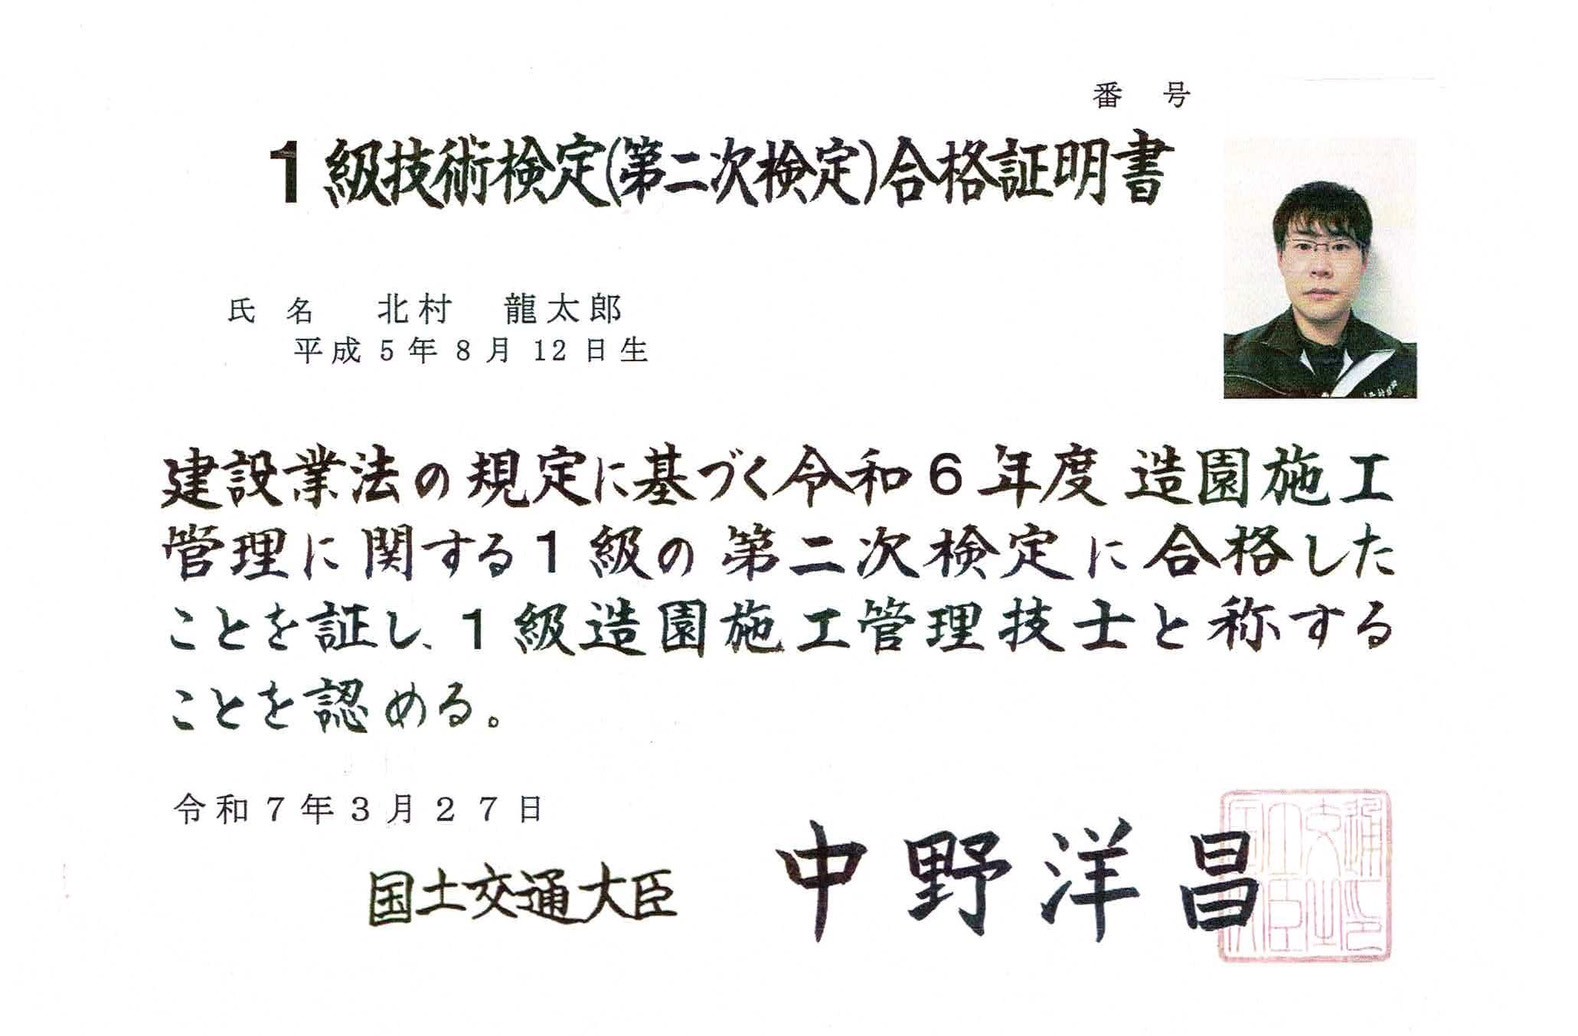 番 号
1級技術検定(第二次検定)合格証明書
氏 名 北村 龍太郎
平成 5 年 8 月 12 日生
建設業法の規定に基づく令和6年度 造園施工
管理に関する1級の第二次検定に合格した
ことを証し、1級造園施工管理技士と称する
ことを認める。
令和 7 年 3 月 2 7 日
国土交通大臣 中野洋昌